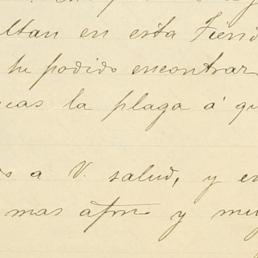 ltan en esta Tiend
he podido encontrar
cas la plaga á qu
s a V. salud, y en
mas afmo y muy